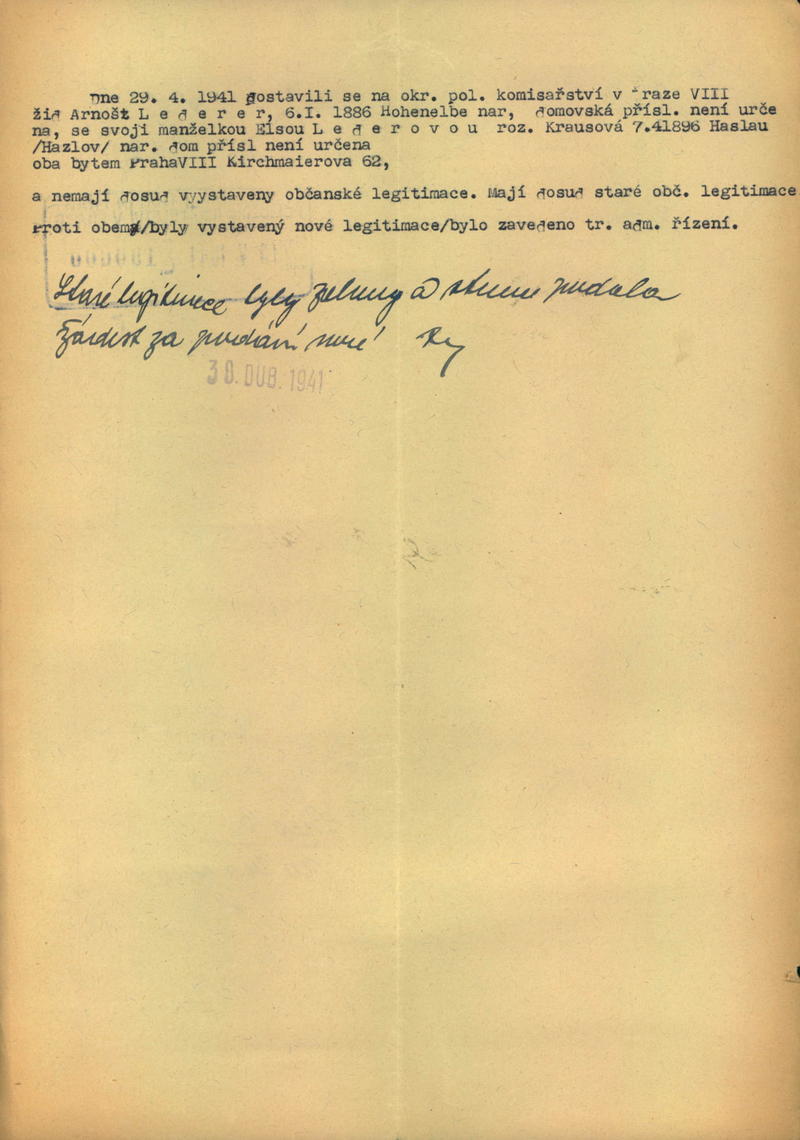 Dne 29. 4. 1941 dostavili se na okr. pol. komisařství v Praze VIII
žid Arnošt L e d e r e r, 6.I. 1886 Hohenelbe nar, domovská přísl. není urče
na, se svoji manželkou Elsou L e d e r o v o u roz. Krausová 7.41896 Haslau
/Hazlov/ nar. dom přísl není určena
oba bytem PrahaVIII Kirchmaierova 62,
a nemají dosud vyystaveny občanské legitimace. Mají dosud staré obč. legitimace
Proti obema/byly vystavený nové legitimace/bylo zavedeno tr. adm. řízení.
Staré legitimace byly a podala
žádost za
30. DUB. 1941